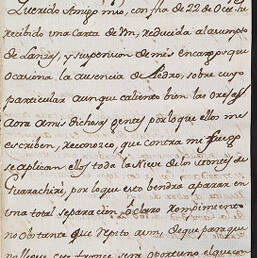 Querido Amigo mio, con fha de 22 de Oct.e he
recibido una Carta de Vm, reducida al asumpto
de Lanzas, y suspension de mis encargos que
ocasiona la ausencia de Pedro, sobre cuyo
particular aunque caliento bien las orejas
aora a mis dichosas gentes, por lo que ellos me
escriben, reconozco, que contra mi fuego
se aplican ellos toda la Nieve de los montes de
Guarachiri, por lo que esto bendra a parar en
una total separacion, o claro rompimiento
no obstante que repito a vm, de que para que
no llegue ese trance sera oportuno el que con